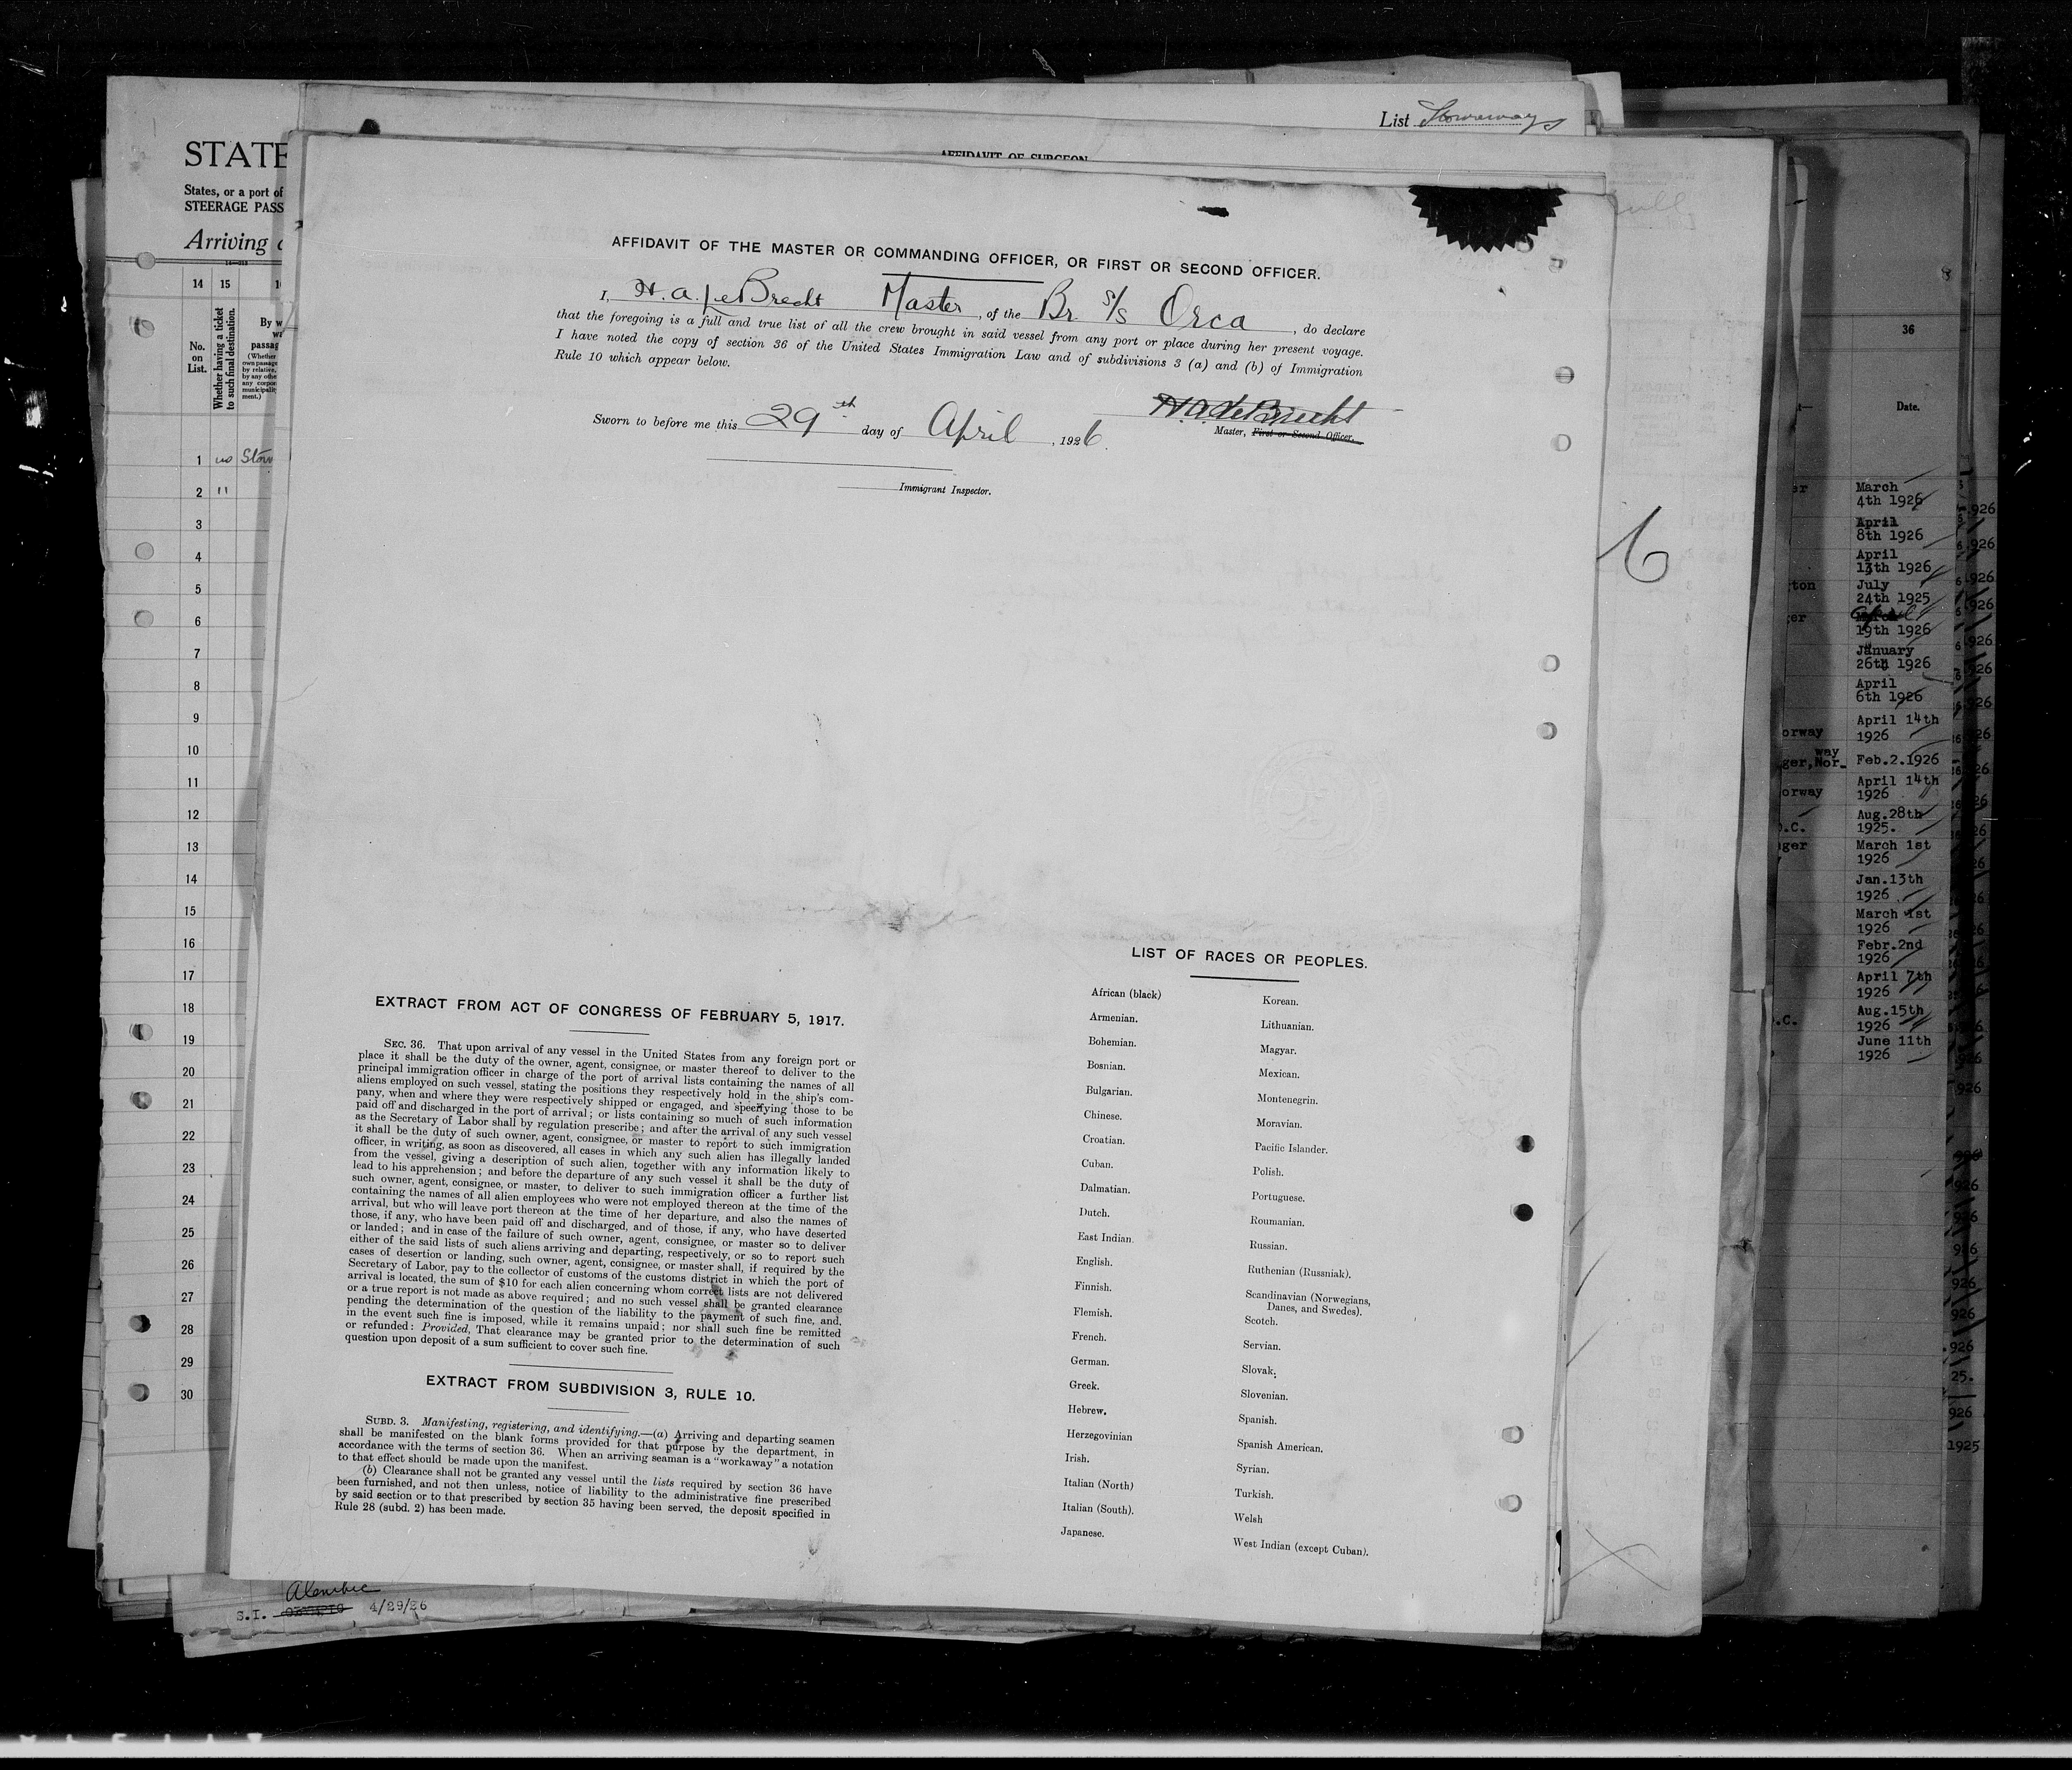 List Stowaways
AFFIDAVIT OF SURGEON
STATE
States, or a port of
STEERAGE PASS
Arriving
14 15
No. on List.
Whether having a ticket to such final destination.
By w
passag
(Whether
own passage
by relative,
by any othe
any corpor
municipalit
ment.)
1 no Stow
2 "
3
4
5
6
7
8
9
10
11
12
13
14
15
16
17
18
19
20
21
22
23
24
25
26
27
28
29
30
AFFIDAVIT OF THE MASTER OR COMMANDING OFFICER, OR FIRST OR SECOND OFFICER.
I, Master, of the Br. S/S Orca, do declare
that the foregoing is a full and true list of all the crew brought in said vessel from any port or place during her present voyage.
I have noted the copy of section 36 of the United States Immigration Law and of subdivisions 3 (a) and (b) of Immigration
Rule 10 which appear below.
Sworn to before me this 29th day of April, 1926.
Master, First or Second Officer.
Immigrant Inspector.
EXTRACT FROM ACT OF CONGRESS OF FEBRUARY 5, 1917.
SEC. 36. That upon arrival of any vessel in the United States from any foreign port or
place it shall be the duty of the owner, agent, consignee, or master thereof to deliver to the
principal immigration officer in charge of the port of arrival lists containing the names of all
aliens employed on such vessel, stating the positions they respectively hold in the ship's com-
pany, when and where they were respectively shipped or engaged, and specifying those to be
paid off and discharged in the port of arrival; or lists containing so much of such information
as the Secretary of Labor shall by regulation prescribe; and after the arrival of any such vessel
it shall be the duty of such owner, agent, consignee, or master to report to such immigration
officer, in writing, as soon as discovered, all cases in which any such alien has illegally landed
from the vessel, giving a description of such alien, together with any information likely to
lead to his apprehension; and before the departure of any such vessel it shall be the duty of
such owner, agent, consignee, or master, to deliver to such immigration officer a further list
containing the names of all alien employees who were not employed thereon at the time of the
arrival, but who will leave port thereon at the time of her departure, and also the names of
those, if any, who have been paid off and discharged, and of those, if any, who have deserted
or landed; and in case of the failure of such owner, agent, consignee, or master so to deliver
either of the said lists of such aliens arriving and departing, respectively, or so to report such
cases of desertion or landing, such owner, agent, consignee, or master shall, if required by the
Secretary of Labor, pay to the collector of customs of the customs district in which the port of
arrival is located, the sum of $10 for each alien concerning whom correct lists are not delivered
or a true report is not made as above required; and no such vessel shall be granted clearance
pending the determination of the question of the liability to the payment of such fine, and,
in the event such fine is imposed, while it remains unpaid; nor shall such fine be remitted
or refunded: Provided, That clearance may be granted prior to the determination of such
question upon deposit of a sum sufficient to cover such fine.
EXTRACT FROM SUBDIVISION 3, RULE 10.
SUBD. 3. Manifesting, registering, and identifying.—(a) Arriving and departing seamen
shall be manifested on the blank forms provided for that purpose by the department, in
accordance with the terms of section 36. When an arriving seaman is a "workaway" a notation
to that effect should be made upon the manifest.
(b) Clearance shall not be granted any vessel until the lists required by section 36 have
been furnished, and not then unless, notice of liability to the administrative fine prescribed
by said section or to that prescribed by section 35 having been served, the deposit specified in
Rule 28 (subd. 2) has been made.
LIST OF RACES OR PEOPLES.
African (black)
Armenian.
Bohemian.
Bosnian.
Bulgarian.
Chinese.
Croatian.
Cuban.
Dalmatian.
Dutch.
East Indian.
English.
Finnish.
Flemish.
French.
German.
Greek.
Hebrew.
Herzegovinian
Irish.
Italian (North)
Italian (South).
Japanese.
Korean.
Lithuanian.
Magyar.
Mexican.
Montenegrin.
Moravian.
Pacific Islander.
Polish.
Portuguese.
Roumanian.
Russian.
Ruthenian (Russniak).
Scandinavian (Norwegians,
Danes, and Swedes).
Scotch.
Servian.
Slovak.
Slovenian.
Spanish.
Spanish American.
Syrian.
Turkish.
Welsh
West Indian (except Cuban).
6
36
Date.
March
4th 1926
April
8th 1926
April
13th 1926
July
24th 1925
April
19th 1926
January
26th 1926
April
6th 1926
orway
April 14th
1926
way
ger,Nor-
Feb.2.1926
orway
April 14th
1926
Aug.28th
1925.
March 1st
1926
Jan.13th
1926
March 1st
1926
Febr.2nd
1926
April 7th
1926
Aug.15th
1926
June 11th
1926
Alembic
S.I. 4/29/26